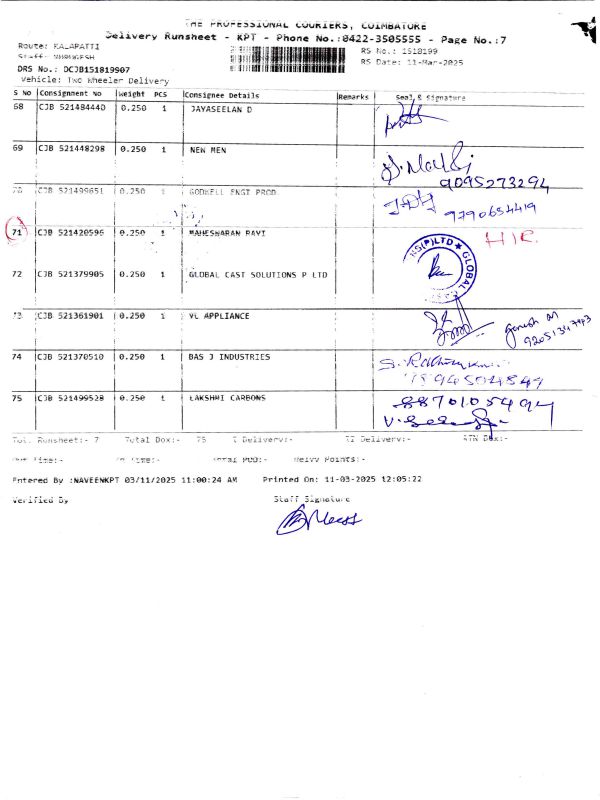 THE PROFESSIONAL COURIERS, COIMBATORE
Delivery Runsheet - KPT - Phone No.:0422-3505555 - Page No.:7
Route: KALAPATTI
RS No.: 1518199
Staff:
RS Date: 11-Mar-2025
DRS No.: DCJB151819907
Vehicle: Two Wheeler Delivery
S No Consignment No Weight PCS Consignee Details Remarks Seal & Signature
68 CJB 521484440 0.250 1 JAYASEELAN D
69 CJB 521448298 0.250 1 NEW MEN
9095273294
70 CJB 521499651 0.250 1 GODWELL ENGT PROD
9790654419
71 CJB 521420596 0.250 1 MAHESWARAN RAVI
H/R.
72 CJB 521379905 0.250 1 GLOBAL CAST SOLUTIONS P LTD
NS(P)LTD ★ GLOBAL
73 CJB 521361901 0.250 1 VL APPLIANCE
Ganesh M
74 CJB 521370510 0.250 1 BAS J INDUSTRIES
75 CJB 521499528 0.250 1 LAKSHMI CARBONS
8870105494
Tot. Runsheet:- 7 Total Dox:- 75 T Delivery:- RT Delivery:- ATN Dox:-
Out Time:- In Time:- Total POD:- Helvy Points:-
Entered By :NAVEENKPT 03/11/2025 11:00:24 AM Printed On: 11-03-2025 12:05:22
Verified By Staff Signature